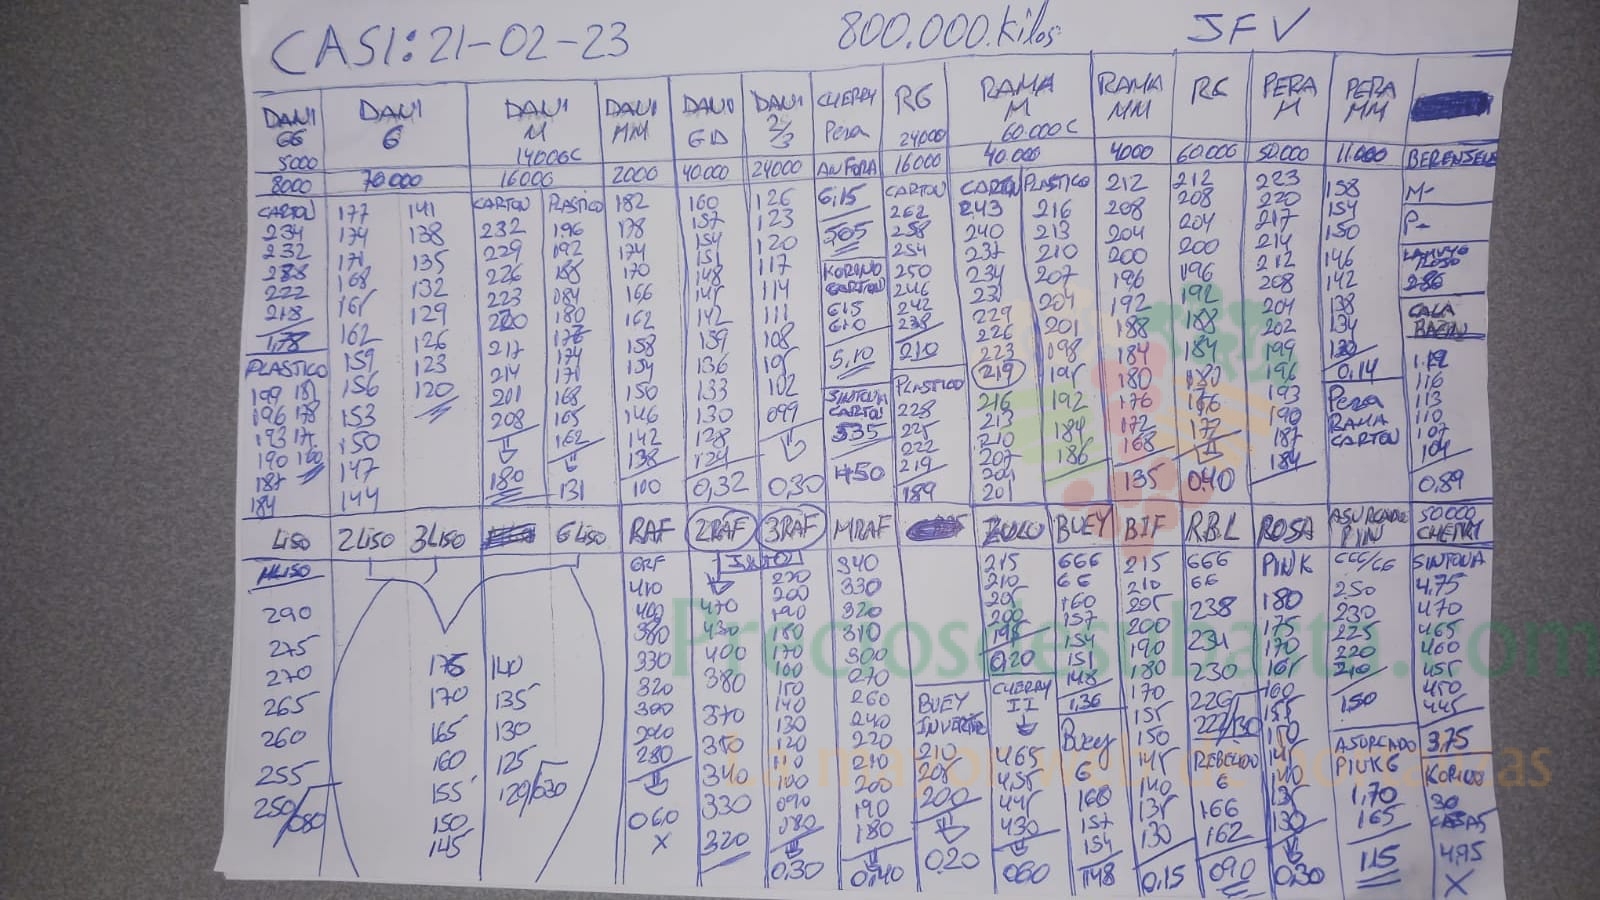 CASI: 21-02-23 800.000 Kilos JFV
DANI GG 5000 8000
CARTON
234
232
228
222
218
1,78
PLASTICO
199 181
196 178
193 175
190 160
187
184
DANI G 70000
177 141
174 138
171 135
168 132
165 129
162 126
159 123
156 120
153
150
147
144
DANI M 14000C 16000
CARTON PLASTICO
232 196
229 192
226 188
223 184
220 180
217 174
214 171
201 168
208 165
180 162
131
DANI MM 2000
182
178
174
170
166
162
158
154
150
146
142
138
100
DANI GD 40000
160
157
154
151
148
145
142
139
136
133
130
128
124
0,32
DANI 2/3 24000
126
123
120
117
114
111
108
105
102
099
0,30
CHERRY Pera
ANFORA
6,15
505
KORINO
CARTON
615
610
5,10
SINTONIA
CARTON
535
450
RG 24000 16000
CARTON
262
258
254
250
246
242
238
210
PLASTICO
228
225
222
219
189
RAMA M 60.000C 40.000
CARTON PLASTICO
243 216
240 213
237 210
234 207
231 204
229 201
226 198
223 195
219 192
216 184
213 186
210
207
204
201
RAMA MM 4000
212
208
204
200
196
192
188
184
180
176
172
168
135
RG 60.000
212
208
204
200
196
192
188
184
180
176
172
0,40
PERA M 50000
223
220
217
214
212
208
204
202
199
196
193
190
187
184
PERA MM 11.000
158
154
150
146
142
138
134
130
0,14
Pera
RAMA
CARTON
BERENJENA
M-
P-
LAMUYO
ROJO
286
CALABACIN
1.19
116
113
110
107
104
0,89
LISO 2LISO 3LISO 6LISO RAF 2RAF 3RAF MRAF BUEY BIF RBL ROSA ASURCADO PIN 50000 CHERRY
290
275
270
265
260
255
250/080
175 140
170 135
165 130
160 125
155 120/030
150
145
GRF
410
400
380
330
320
300
290
280
060
X
470
430
400
380
370
350
340
330
320
220
200
190
180
170
160
150
140
130
120
110
100
090
080
0,30
340
330
320
310
300
270
260
240
220
210
200
190
180
0,40
BUEY
INVERTIO
210
205
200
0.20
215
210
205
200
195
0,20
CHERRY
II
465
455
445
430
060
666
66
160
157
154
151
148
1,36
Buey
G
160
157
154
1,48
215
210
205
200
190
180
170
155
150
145
140
135
130
0,15
666
66
238
234
230
226
222/130
REBELIDO
G
166
162
090
PINK
180
175
170
165
160
155
150
145
140
135
130
0,30
666/66
250
230
225
220
210
150
ASURCADO
PINK G
1,70
165
115
SINTONIA
4,75
470
465
460
455
450
445
3,75
KORINO
30
CASAS
4,95
X
Preciosdesubasta.com